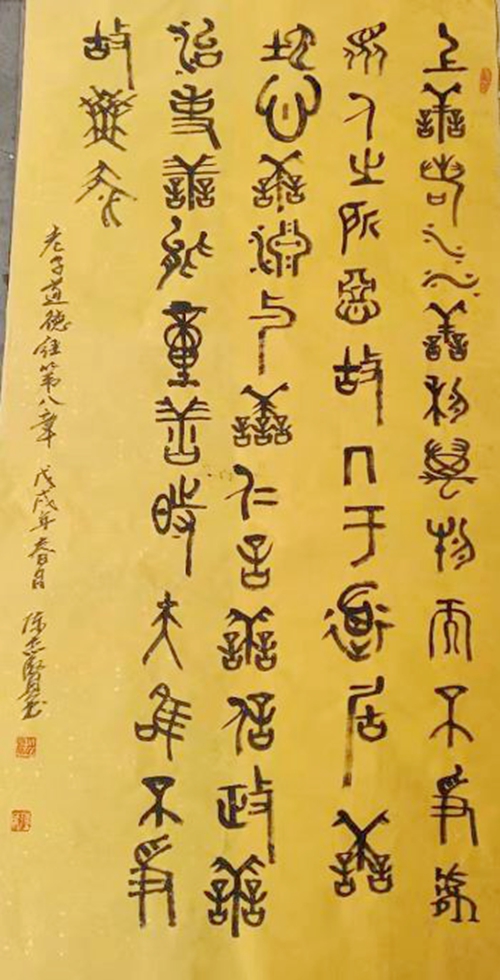 上善若水水善利萬物而不爭處
眾人之所惡故几于道居善
地心善淵与善仁言善信政善
治事善能動善時夫唯不爭
故無尤
老子道德经第八章 戊戌年春月 陈志賢书